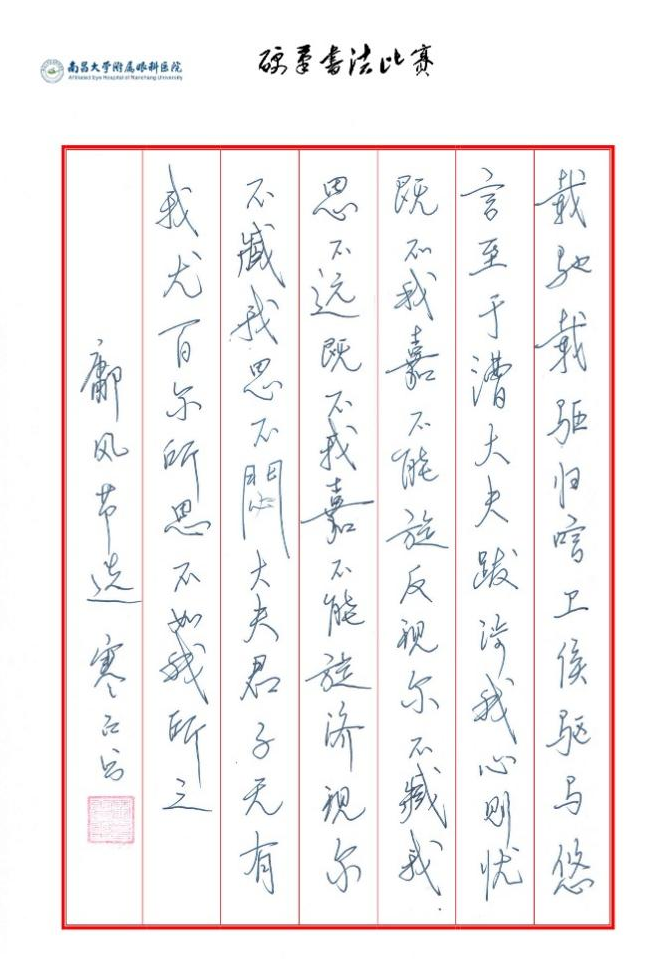 南昌大学附属眼科医院
Affiliated Eye Hospital of Nanchang University
硬笔书法比赛
载驰载驱归唁卫侯驱马悠
言至于漕大夫跋涉我心则忧
既不我嘉不能旋反视尔不臧我
思不远既不我嘉不能旋济视尔
不臧我思不閟大夫君子无有
我尤百尔所思不如我所之
鄘风节选 寒石书